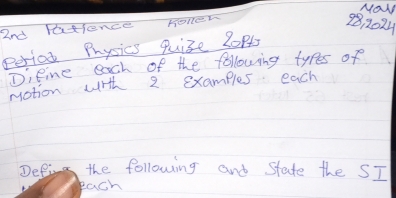 2nd Patience Kollen Nov
28, 2024
Period Physics Quize 20pts
Difine each of the following types of
Motion with 2 Examples each
Define the following and State the SI
each